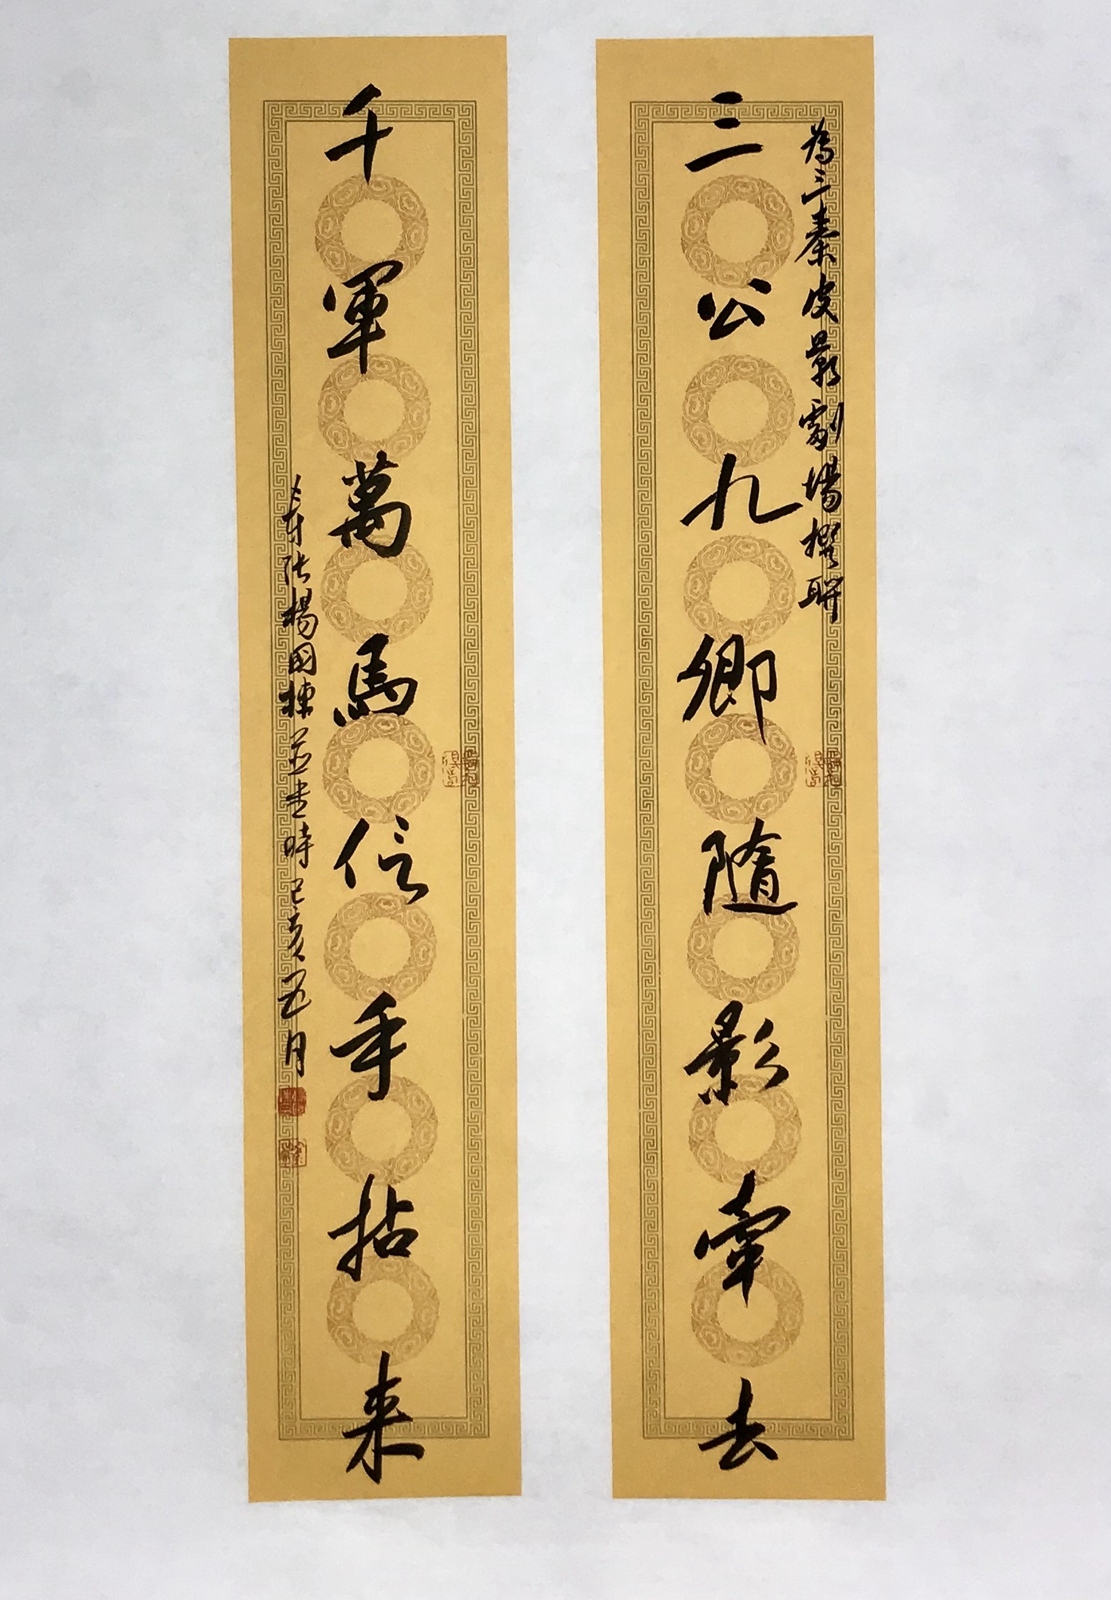 為三秦皮影劇場撰聯
三公九卿隨影牽去
千軍萬馬信手拈来
楊國棟並书時己亥五月